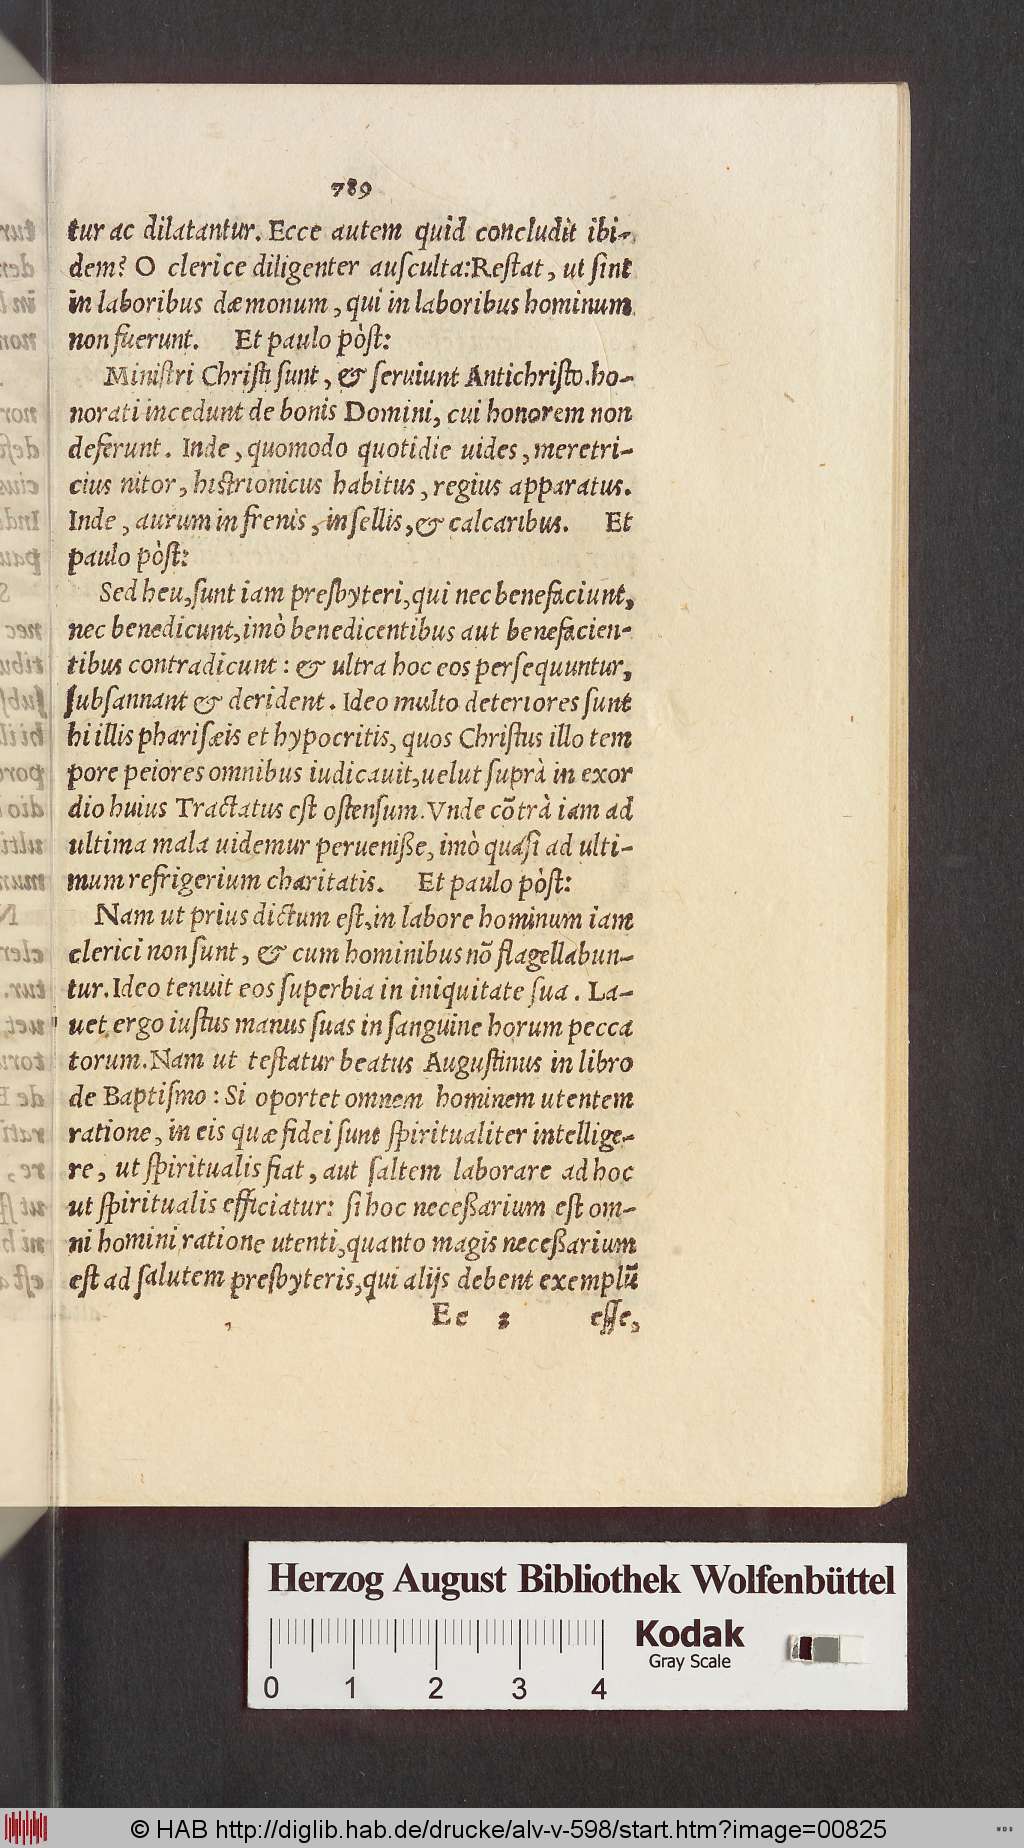 789
tur ac dilatantur. Ecce autem quid concludit ibi-
dem? O clerice diligenter auſculta: Reſtat, ut ſint
in laboribus dæmonum, qui in laboribus hominum
non fuerunt. Et paulo pòſt:
Miniſtri Chriſti ſunt, & ſeruiunt Antichriſto. ho-
norati incedunt de bonis Domini, cui honorem non
deferunt. Inde, quomodo quotidie uides, meretri-
cius nitor, hiſtrionicus habitus, regius apparatus.
Inde, aurum in frenis, in ſellis, & calcaribus. Et
paulo pòſt:
Sed heu, ſunt iam preſbyteri, qui nec benefaciunt,
nec benedicunt, imò benedicentibus aut benefacien-
tibus contradicunt: & ultra hoc eos perſequuntur,
ſubſannant & derident. Ideo multo deteriores ſunt
hi illis phariſæis et hypocritis, quos Chriſtus illo tem
pore peiores omnibus iudicauit, uelut ſuprà in exor
dio huius Tractatus eſt oſtenſum. Vnde cõtrà iam ad
ultima mala uidemur perueniſſe, imò quaſi ad ulti-
mum refrigerium charitatis. Et paulo pòſt:
Nam ut prius dictum eſt, in labore hominum iam
clerici non ſunt, & cum hominibus nõ flagellabun-
tur. Ideo tenuit eos ſuperbia in iniquitate ſua. La-
uet ergo iuſtus manus ſuas in ſanguine horum pecca
torum. Nam ut teſtatur beatus Auguſtinus in libro
de Baptiſmo: Si oportet omnem hominem utentem
ratione, in eis quæ fidei ſunt ſpiritualiter intellige-
re, ut ſpiritualis fiat, aut ſaltem laborare ad hoc
ut ſpiritualis efficiatur: ſi hoc neceſſarium eſt om-
ni homini ratione utenti, quanto magis neceſſarium
eſt ad ſalutem preſbyteris, qui alijs debent exemplũ
Ee 2 eſſe,
Herzog August Bibliothek Wolfenbüttel
Kodak
Gray Scale
0 1 2 3 4
© HAB http://diglib.hab.de/drucke/alv-v-598/start.htm?image=00825